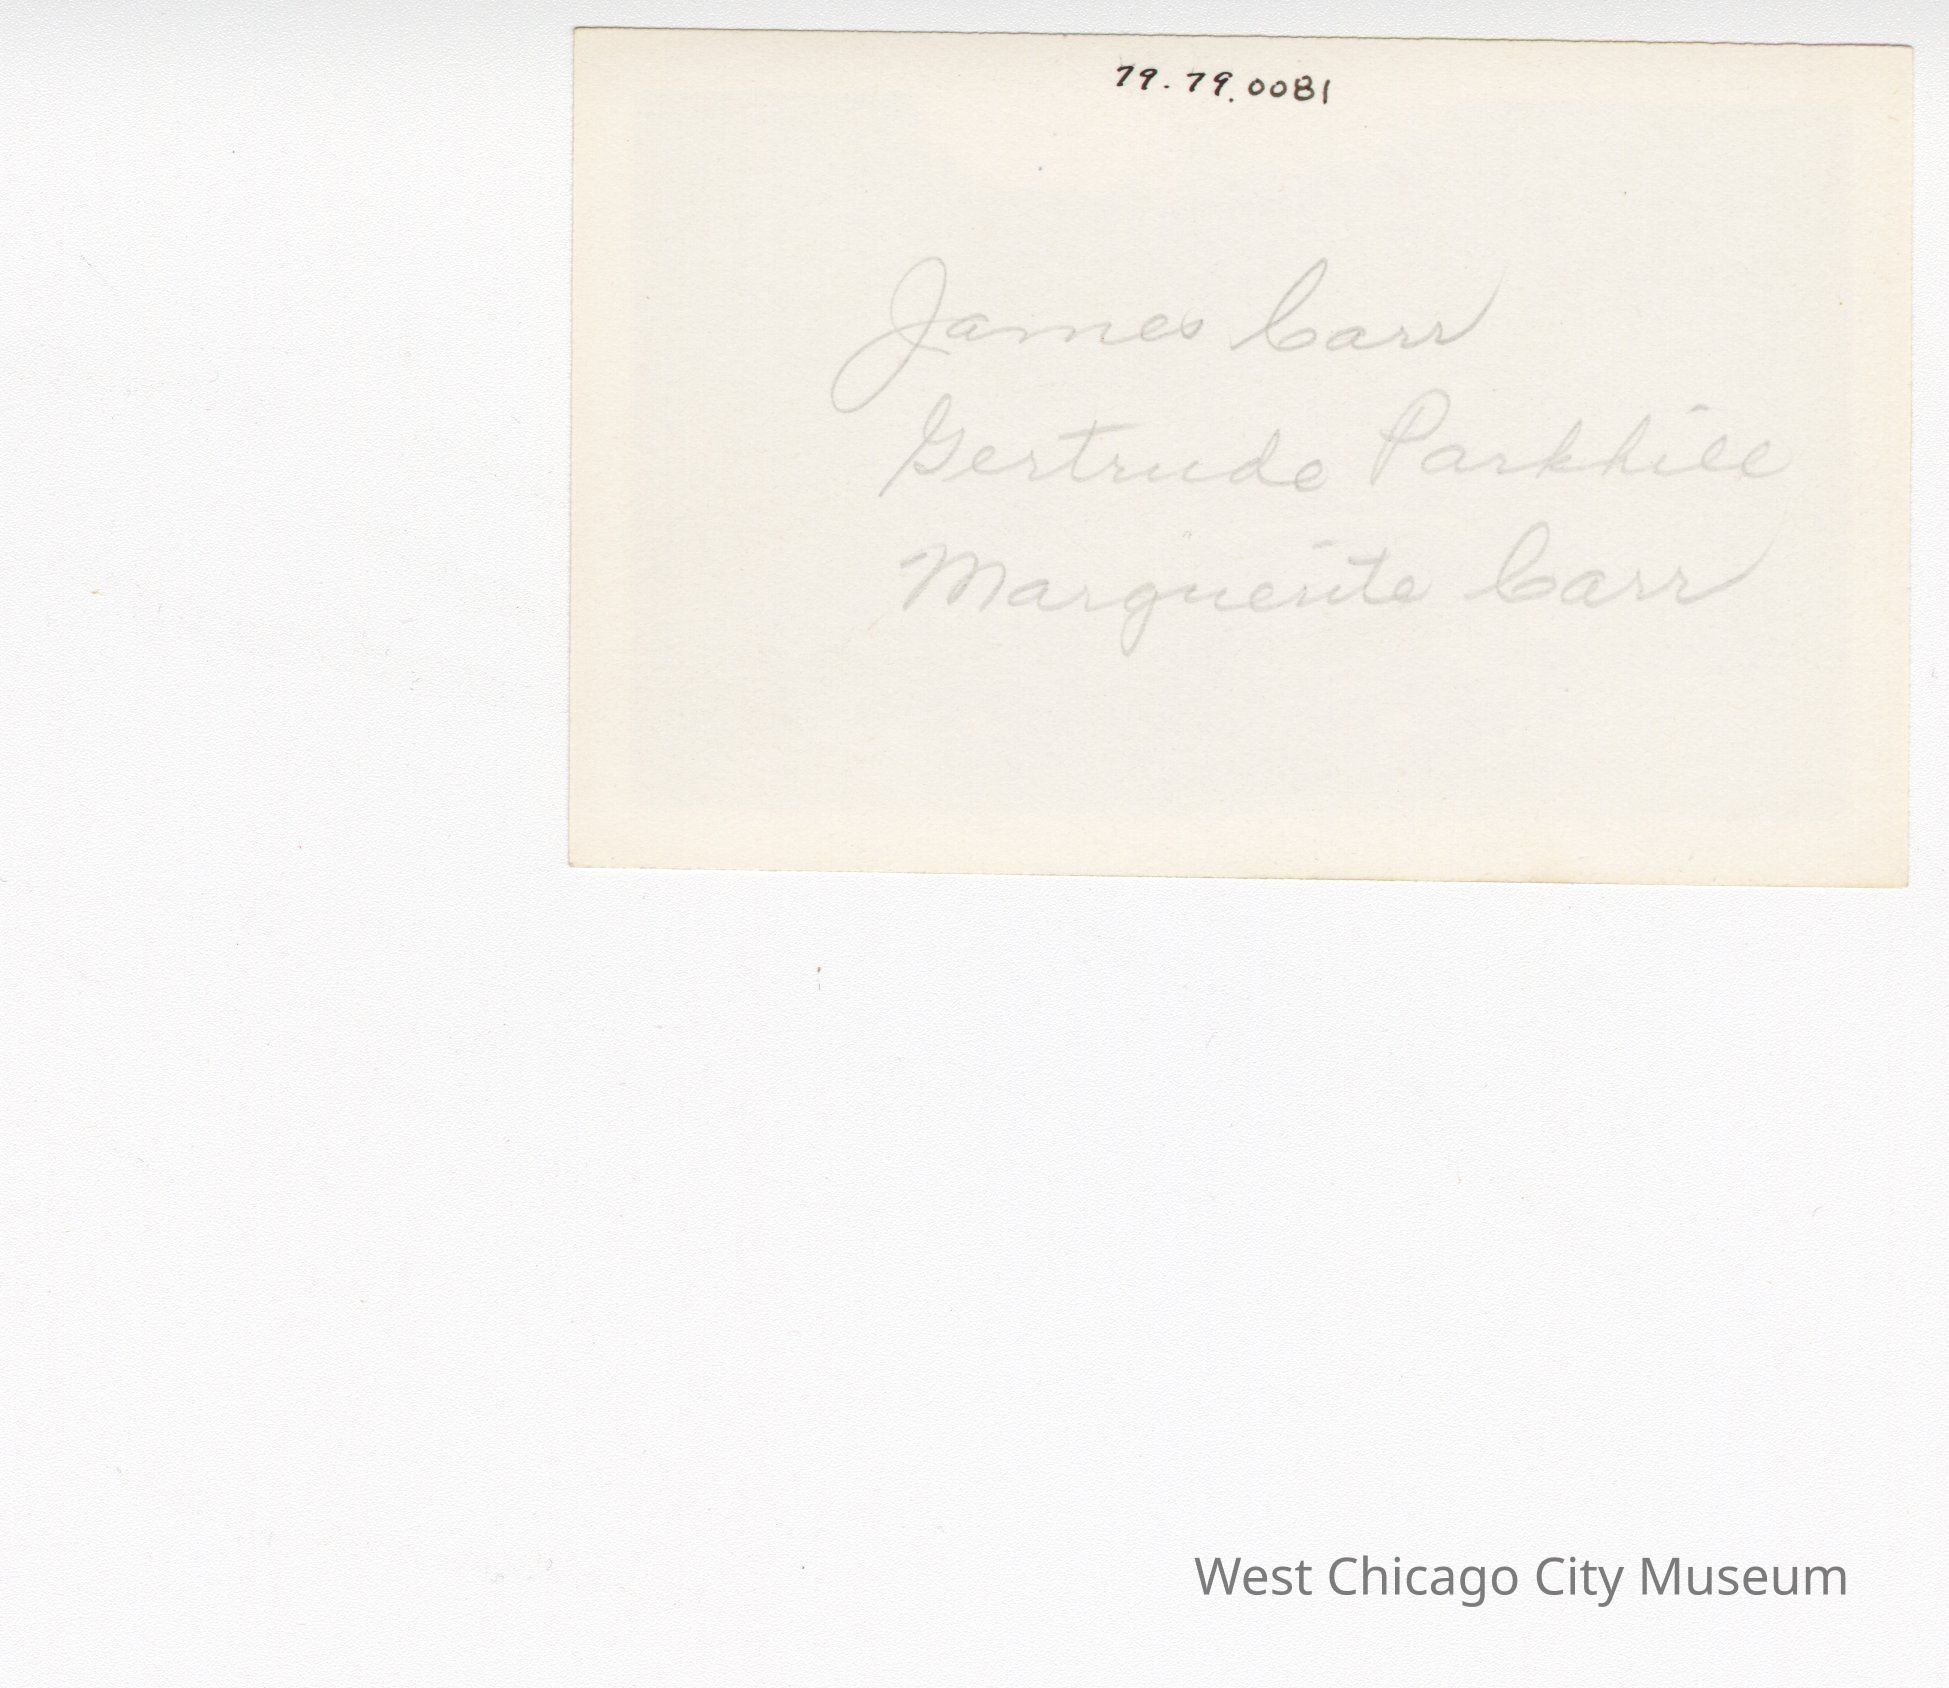 79.79.0081
James Carr
Gertrude Parkhill
Marguerite Carr
West Chicago City Museum